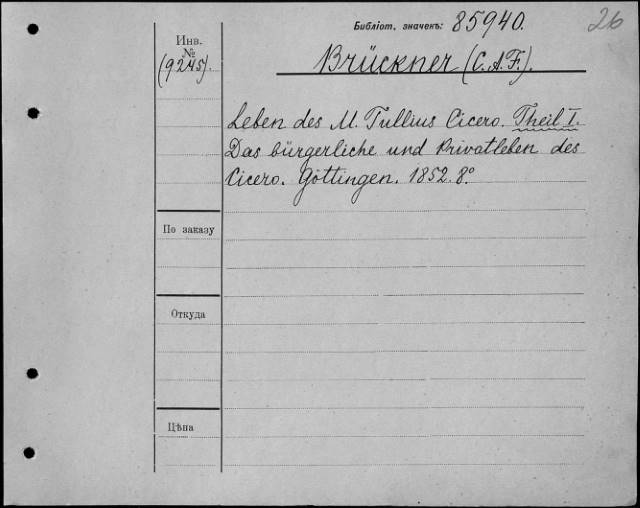 Библіот. значекъ: 85940.
26
Инв.
№
(9245).
Brückner (C. A. F.).
Leben des M. Tullius Cicero. Theil I.
Das bürgerliche und Privatleben des
Cicero. Göttingen. 1852. 8°
По заказу
Откуда
Цѣна